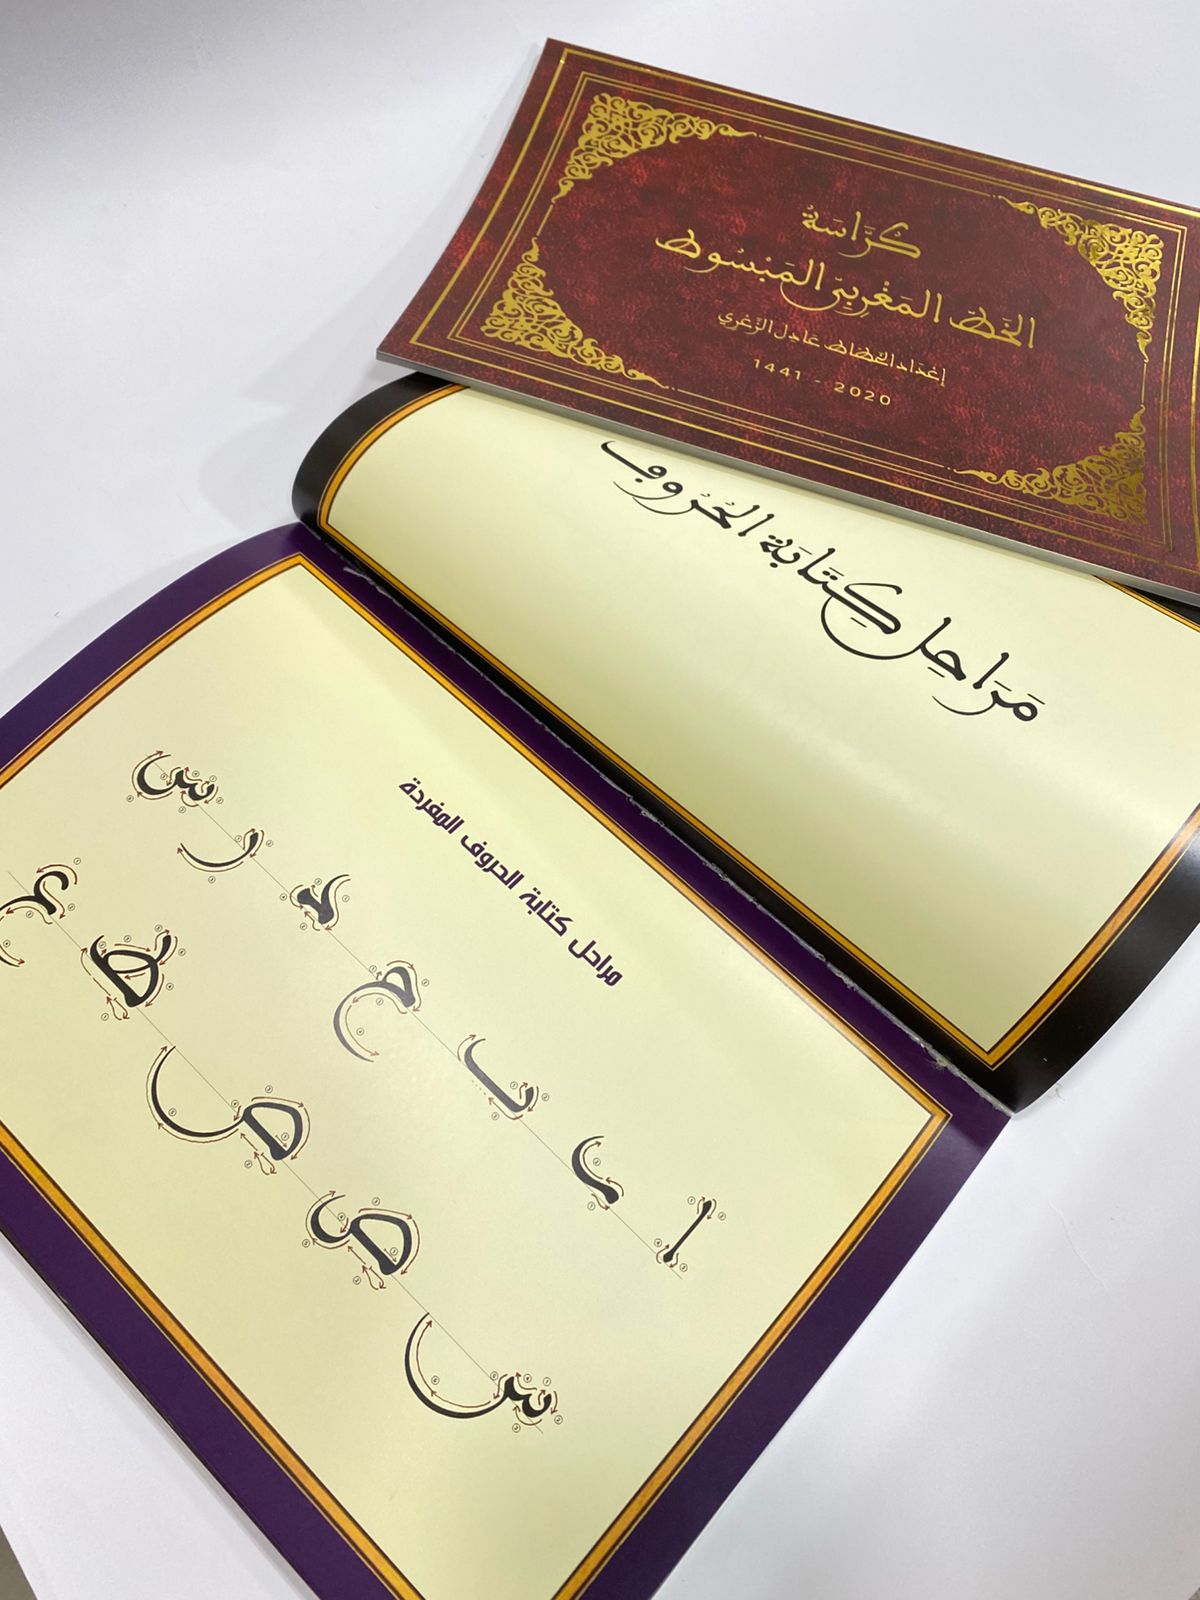 كُرَّاسَةُ
الخَط المَغْرِبِيِّ المَبْسُوط
إعْدَاد الخَطاط عَادِل الزَّعْزِي
1441 - 2020
مَرَاحِل كِتَابَة الحُرُوف
مراحل كتابة الحروف المفردة